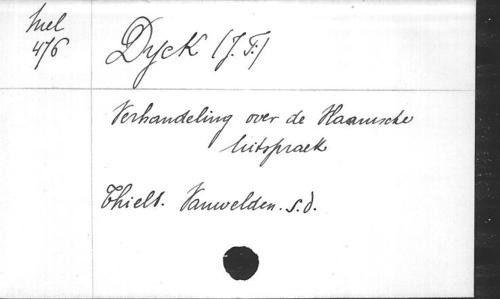 Mel
476
Dyck (J. F.)
Verhandeling over de Vlaamsche
Uitspraek
Thielt. Vanwelden. s.d.